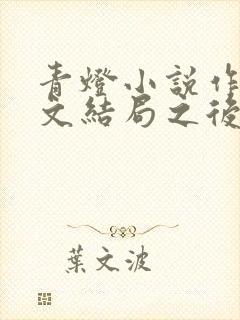 青燈小說作
文結局之後
葉文波